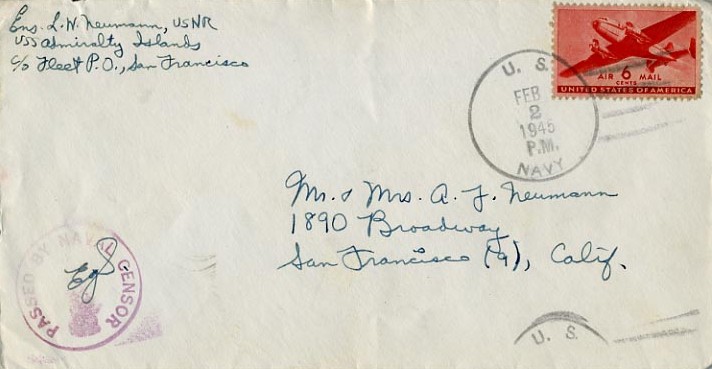 Ens. L. N. Neumann, USNR
USS Admiralty Islands
c/o Fleet P.O., San Francisco
AIR 6 MAIL
CENTS
UNITED STATES OF AMERICA
U. S.
FEB
2
1945
P.M.
NAVY
Mr. & Mrs. A. J. Neumann
1890 Broadway
San Francisco (9), Calif.
PASSED BY NAVAL CENSOR
U. S.